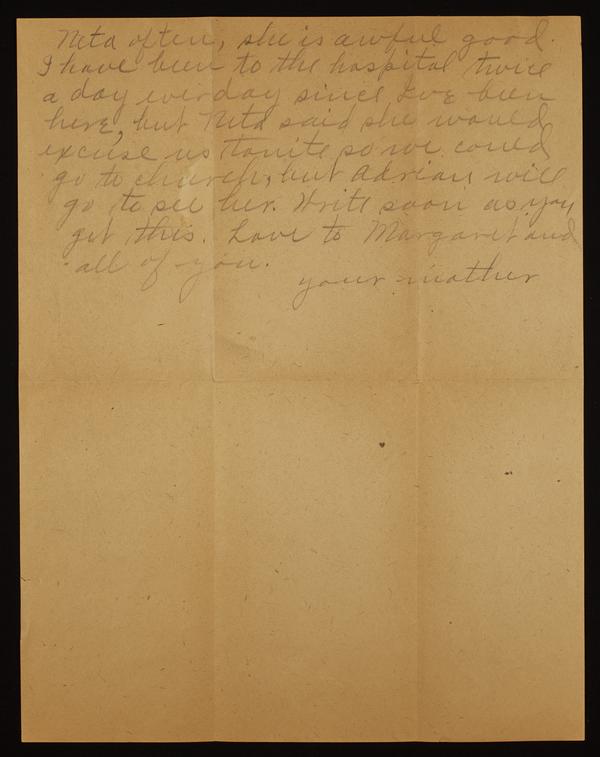 Neta often, she is awful good.
I have been to the hospital twice
a day everday since I've been
here, but Neta said she would
excuse us tonite so we could
go to church, but Adrian will
go to see her. Write soon as you
get this. Love to Margaret and
all of you.
your mother